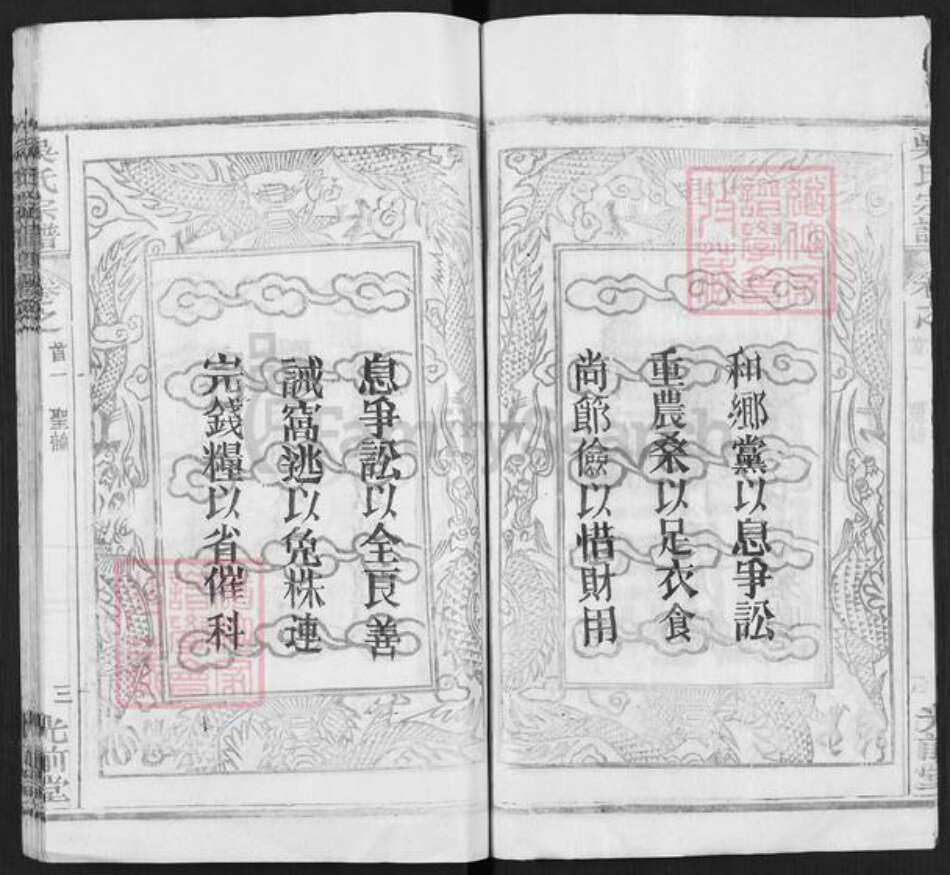 和鄉黨以息爭訟
重農桑以足衣食
尚節儉以惜財用
息爭訟以全良善
誡窩逃以免株連
完錢糧以省催科
吳氏宗譜
卷之首一
聖諭
三
光前堂
FamilySearch